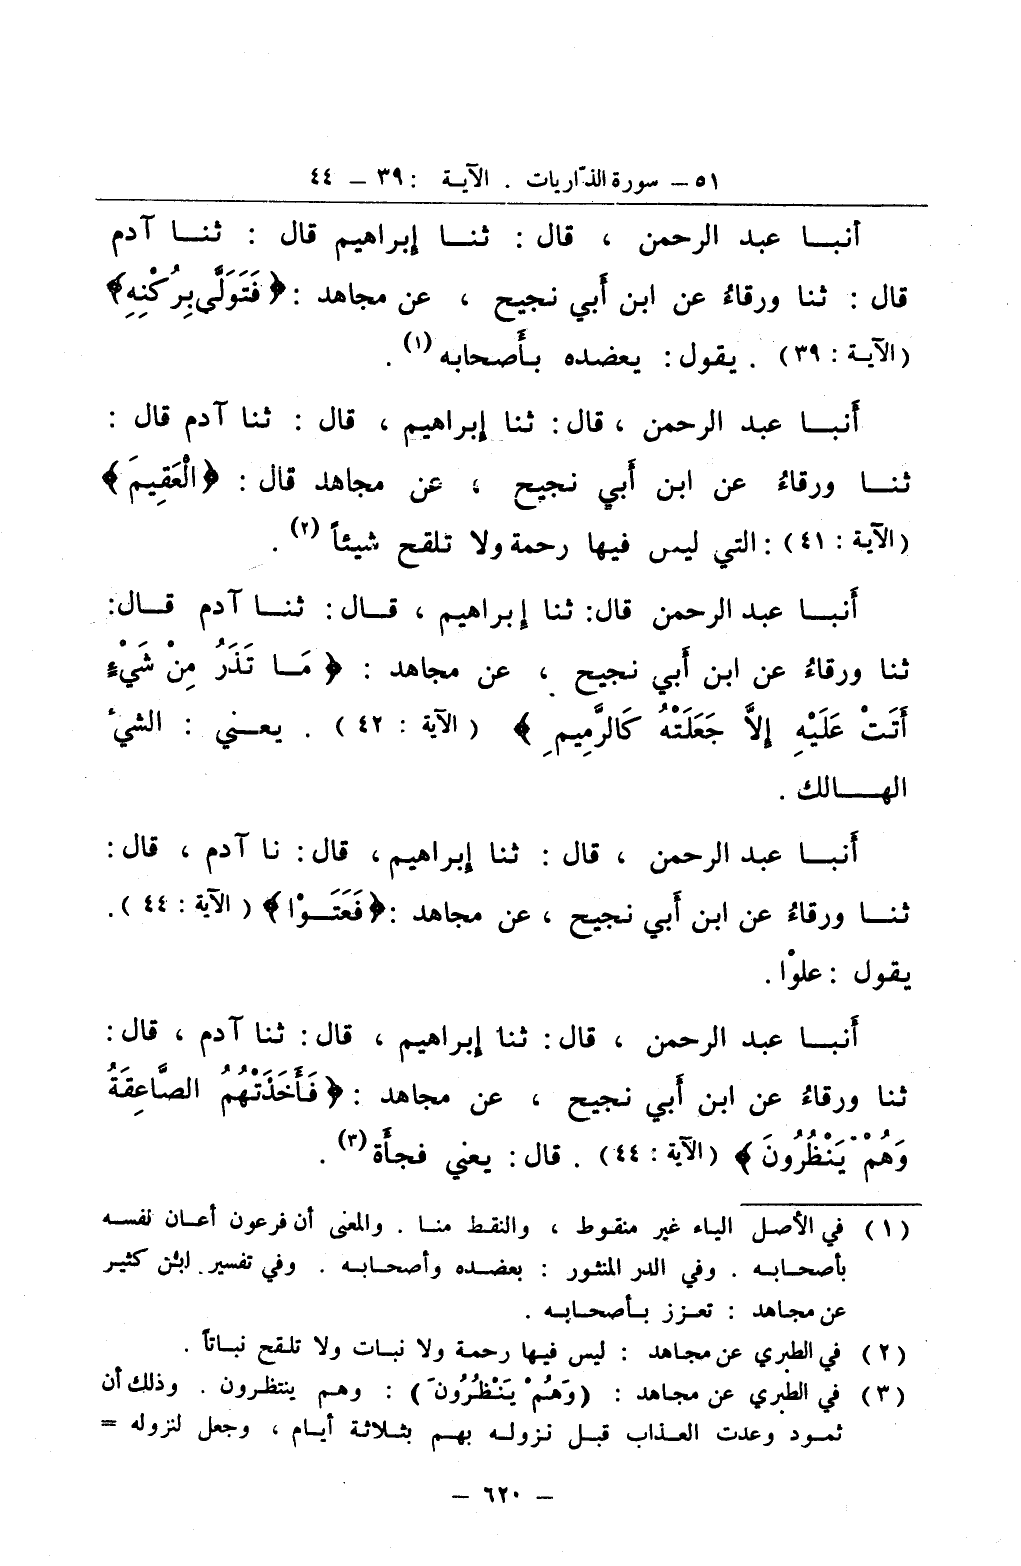 ٥١ – سورة الذّاريات . الآية : ٣٩ – ٤٤
أنبا عبد الرحمن ، قال : ثنا إبراهيم قال : ثنا آدم
قال : ثنا ورقاءُ عن ابن أبي نجيح ، عن مجاهد : ﴿ فَتَوَلَّى بِرُكْنِهِ ﴾
(الآية : ٣٩) . يقول : يعضده بأصحابه (١) .
أنبا عبد الرحمن ، قال : ثنا إبراهيم ، قال : ثنا آدم قال :
ثنا ورقاءُ عن ابن أبي نجيح ، عن مجاهد قال : ﴿ الْعَقِيمَ ﴾
(الآية : ٤١) : التي ليس فيها رحمة ولا تلقح شيئاً (٢) .
أنبا عبد الرحمن قال : ثنا إبراهيم ، قال : ثنا آدم قال :
ثنا ورقاءُ عن ابن أبي نجيح ، عن مجاهد : ﴿ مَا تَذَرُ مِنْ شَيْءٍ
أَتَتْ عَلَيْهِ إِلاَّ جَعَلَتْهُ كَالرَّمِيمِ ﴾ ( الآية : ٤٢ ) . يعني : الشيْ
الهالك .
أنبا عبد الرحمن ، قال : ثنا إبراهيم ، قال : نا آدم ، قال :
ثنا ورقاءُ عن ابن أبي نجيح ، عن مجاهد : ﴿ فَعَتَوْا ﴾ ( الآية : ٤٤ ) .
يقول : علوْا .
أنبا عبد الرحمن ، قال : ثنا إبراهيم ، قال : ثنا آدم ، قال :
ثنا ورقاءُ عن ابن أبي نجيح ، عن مجاهد : ﴿ فَأَخَذَتْهُمُ الصَّاعِقَةُ
وَهُمْ يَنْظُرُونَ ﴾ (الآية : ٤٤) . قال : يعني فجأة (٣) .
(١) في الأصل الياء غير منقوط ، والنقط منا . والمعنى أن فرعون أعان نفسه
بأصحابه . وفي الدر المنثور : بعضده وأصحابه . وفي تفسير ابن كثير
عن مجاهد : تعزز بأصحابه .
(٢) في الطبري عن مجاهد : ليس فيها رحمة ولا نبات ولا تلقح نباتاً .
(٣) في الطبري عن مجاهد : (وَهُمْ يَنْظُرُونَ) : وهم ينتظرون . وذلك أن
ثمود وعدت العذاب قبل نزوله بهم بثلاثة أيام ، وجعل لنزوله =
– ٦٢٠ –